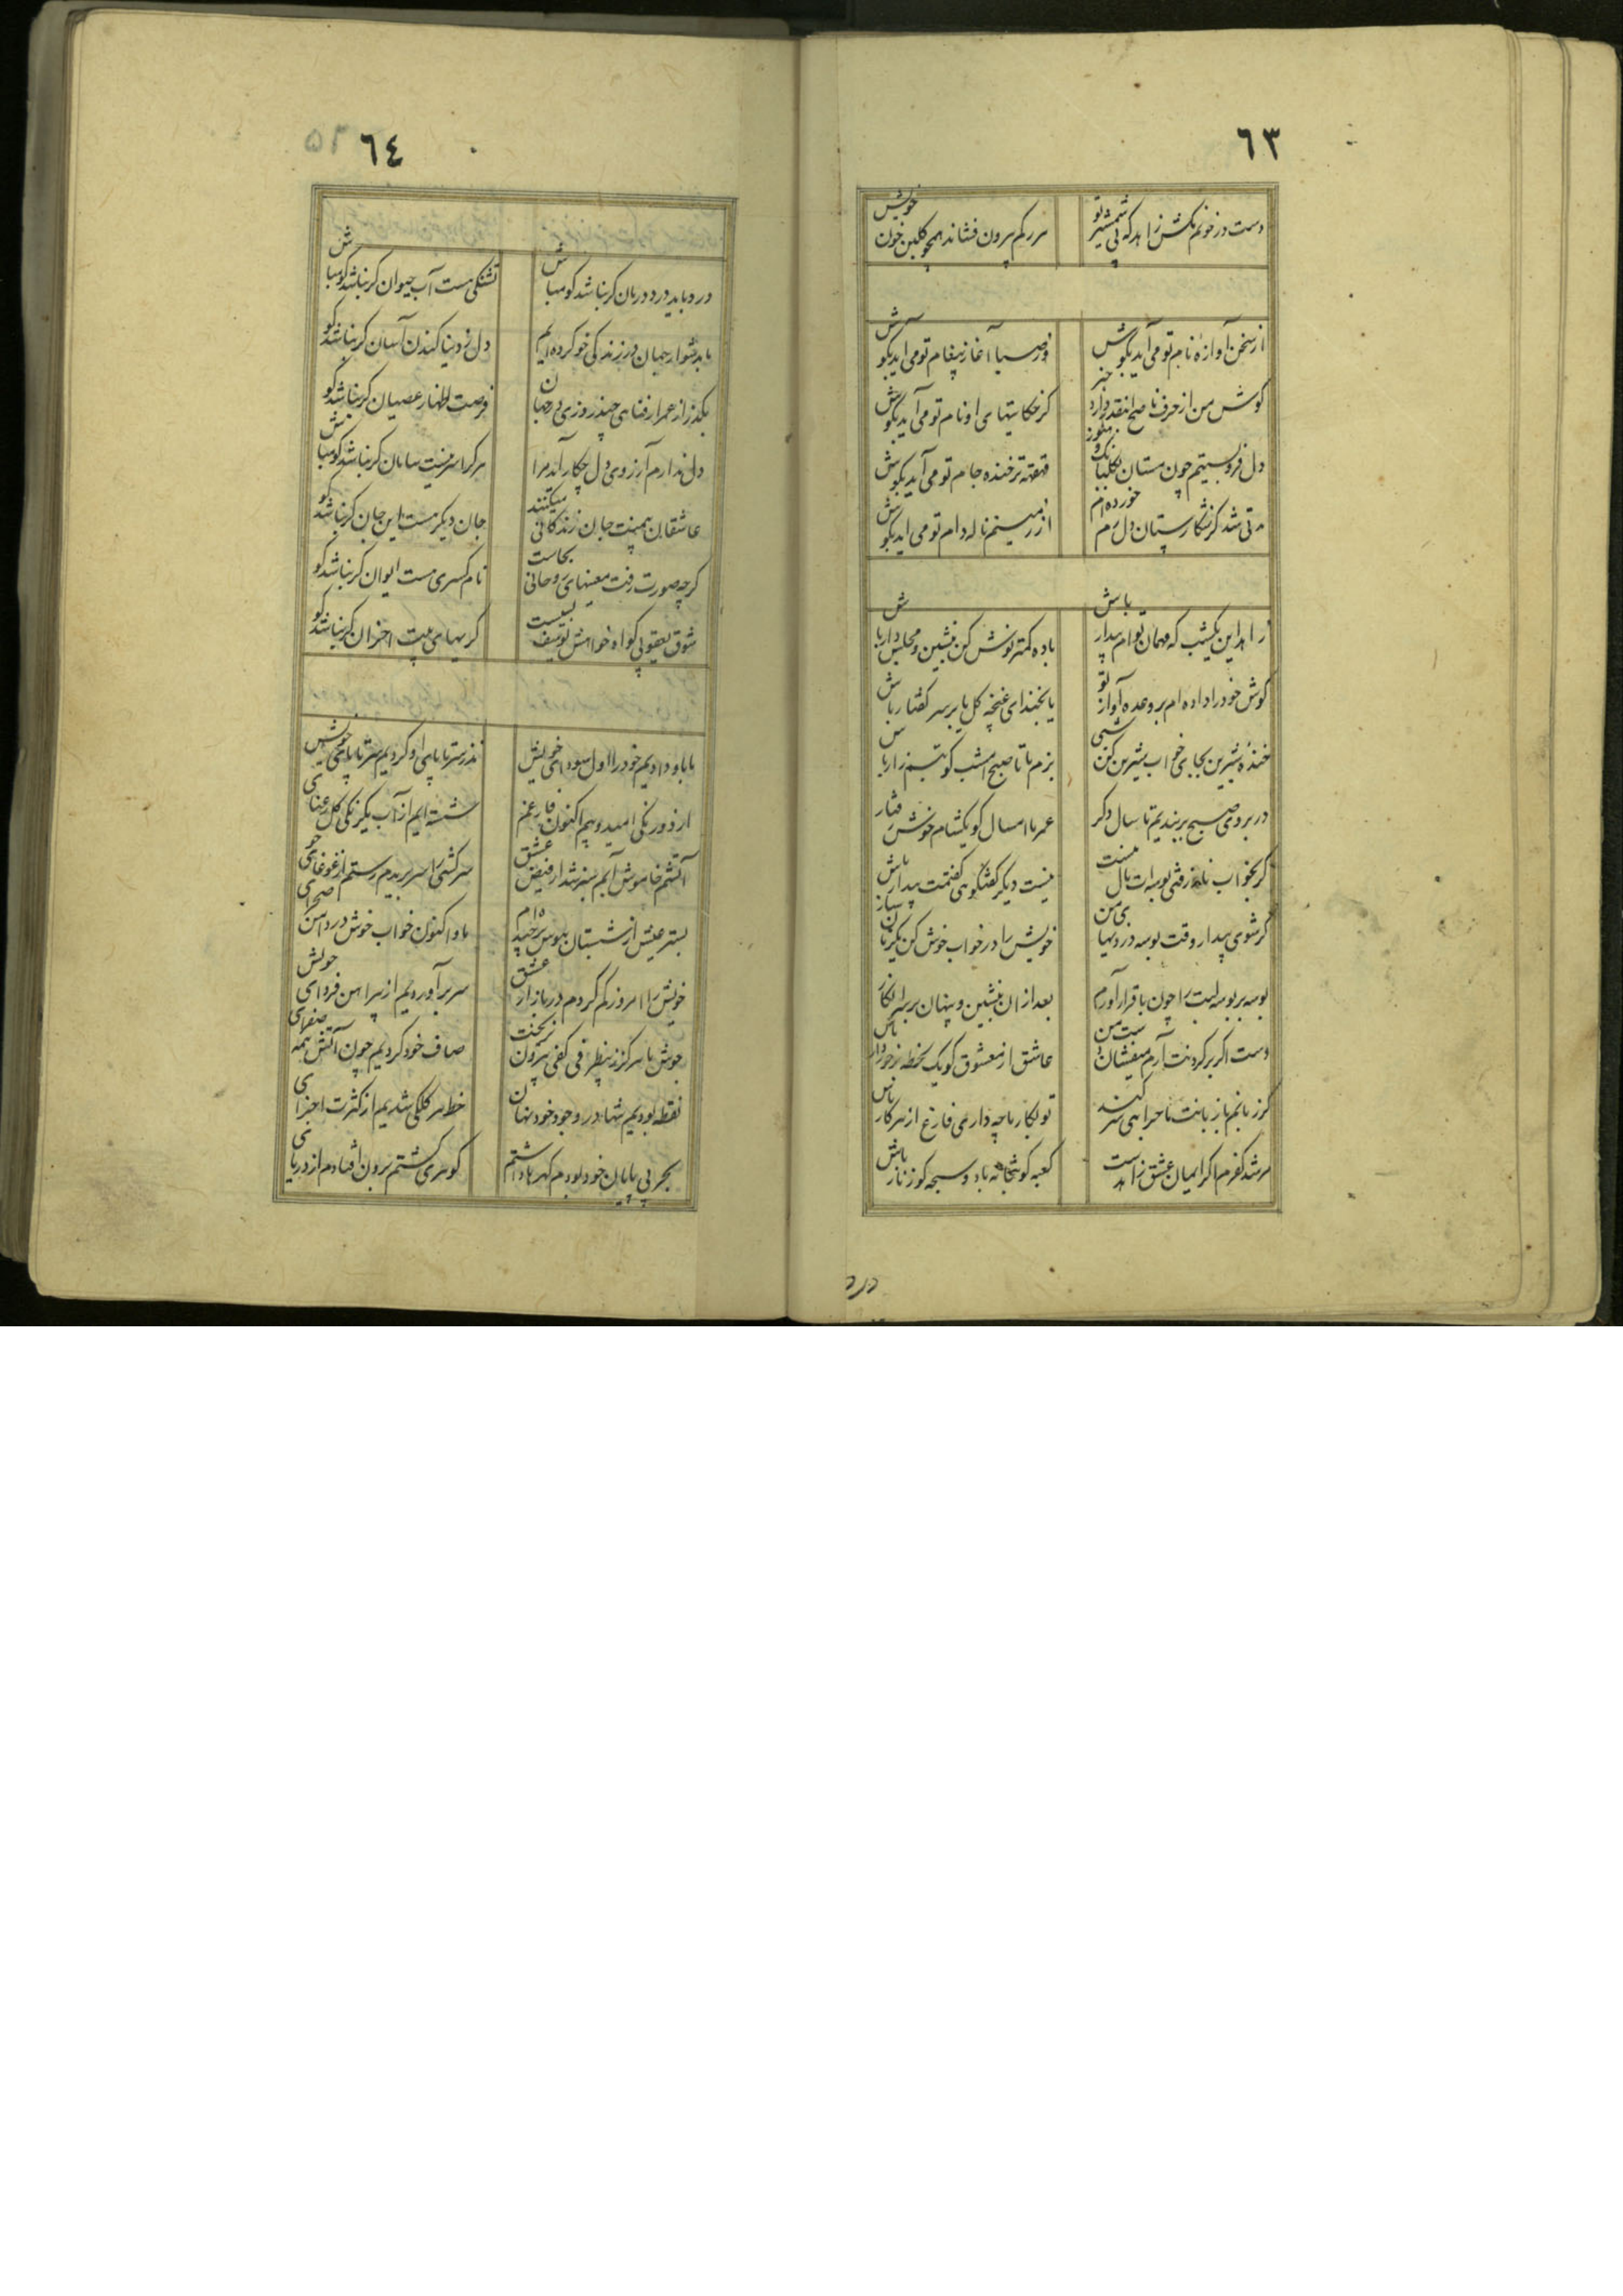 ٦٣
دست در خونم مکش زاهد که بی شمشیر تو
هر رکم بیرون فشاند همچو کلبن خون خویش
از سخن آوازه نام تو می آید بکوش
وز صبا آغاز پیغام تو می آید بکوش
کوش من از حرف ناصح اینقدر دارد خبر
کز حکایتهای او نام تو می آید بکوش
دل فرو بستیم چون مستان بکلبانک
قهقهه تر خنده جام تو می آید بکوش
مدتی شد کز شکارستان دل رم خورده ام
از زمینم ناله دام تو می آید بکوش
زاهد این یکشب که مهمان توام بیدار باش
باده کمتر نوش کن بنشین و مجلس دار باش
کوش خود را داده ام بر وعده آواز تو
یا بخند ای غنچه کل یا بر سر کفتار باش
خنده شیرین بجای خواب شیرین کن شبی
بزم ما تا صبح امشب کو تبسم زار باش
در بروی صبح بربندیم تا سال دکر
عمر ما امسال کو یکشام خوش رفتار
کر بخواب ناز رفتی بوسه ات مال منست
نیست دیکر کفتکویی کفتمت بیدار باش
کر شوی بیدار وقت بوسه دزدیهای من
خویش را در خواب خوش کن یکزمان
بوسه بر بوسه لبت را چون باقرار آورم
بعد از آن بنشین و پنهان بر سر انکار
دست اکر بر کردنت آرم میفشان دست من
عاشق از معشوق کو یک لحظه برخوردار باش
کر زبانم با زبانت ماجرایی سر کند
تو بکار ما چه داری فارغ از هر کار باش
مرشد کفرم اکر ایمان عشق زاهد است
کعبه کو بتخانه باد و سبحه کو زنار باش
درد
٦٤
درد باید درد درمان کر نباشد کو مباش
تشنکی هست آب حیوان کر نباشد کو مباش
ما بدشوار جهان در زندکی خو کرده ایم
دل ز دنیا کندن آسان کر نباشد کو
بکذر از عمر ار فنای چند روزی در جهان
فرصت اظهار عصیان کر نباشد کو
دل ندارم آرزوی دل چکار آید مرا
هر کرا سر نیست سامان کر نباشد کو مباش
عاشقان بی منت جان زندکانی میکنند
جان دیکر هست این جان کر نباشد کو
کر چه صورت رفت معنیهای روحانی بجاست
نام کسری هست ایوان کر نباشد کو
شوق یعقوبی کواه خواهش یوسف بسیست
کریهای بیت احزان کر نباشد کو
ما باو دادیم خود را اول سودای خویش
نذر سر تا پای او کردیم سر تا پای خویش
از دو رنکی امید و بیم اکنون فارغم
شسته ایم از آب یکرنکی کل رعنای
آتشم خاموش آبم سبز شد از فیض عشق
سرکشی را سر بریدم رستم از غوغای
بستر عیش از شبستان هوس برچیده ام
ما و اکنون خواب خوش در دامن صحرای
خویش را امروز کم کردم در بازار عشق
سر برآوردیم از پیراهن فردای خویش
جوش ما هرکز ز ظرفی کفی بیرون نریخت
صاف خود کردیم چون آتش همه صفرای
نقطه بودیم تنها در وجود خود نهان
خط هر کلکی شدیم از کثرت اجزای
بحر بی پایان خود بودم کهرها داشتم
کوهری کشتم برون افتادم از دریای